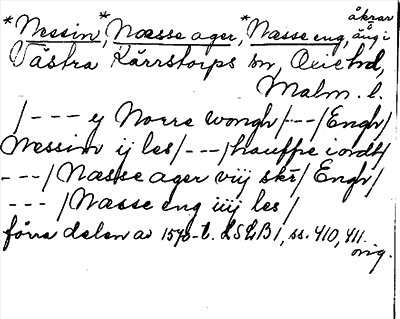 *Nessim, *Næsse ager, *Næsse eng, åkrar
äng i
Västra Kärrstorps sn, Oxie hd,
Malm. l.
/--- y Norre wongh/---/Engh/
Nessim ij les/---/hauffre iordt/
---/Næsse ager viij skr/Engh/
---/Næsse eng iiij les/
förra delen av 1570-t. LSLB1, ss. 410, 411.
orig.